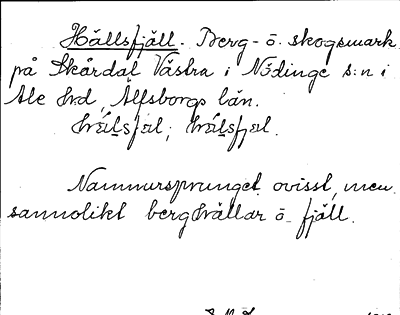 Hällsfjäll. Berg- ō. skogsmark
på Skårdal Västra i Nödinge s:n i
Ale hrd, Älfsborgs län.
Namnursprunget ovisst, men
sannolikt berghällar ō fjäll.